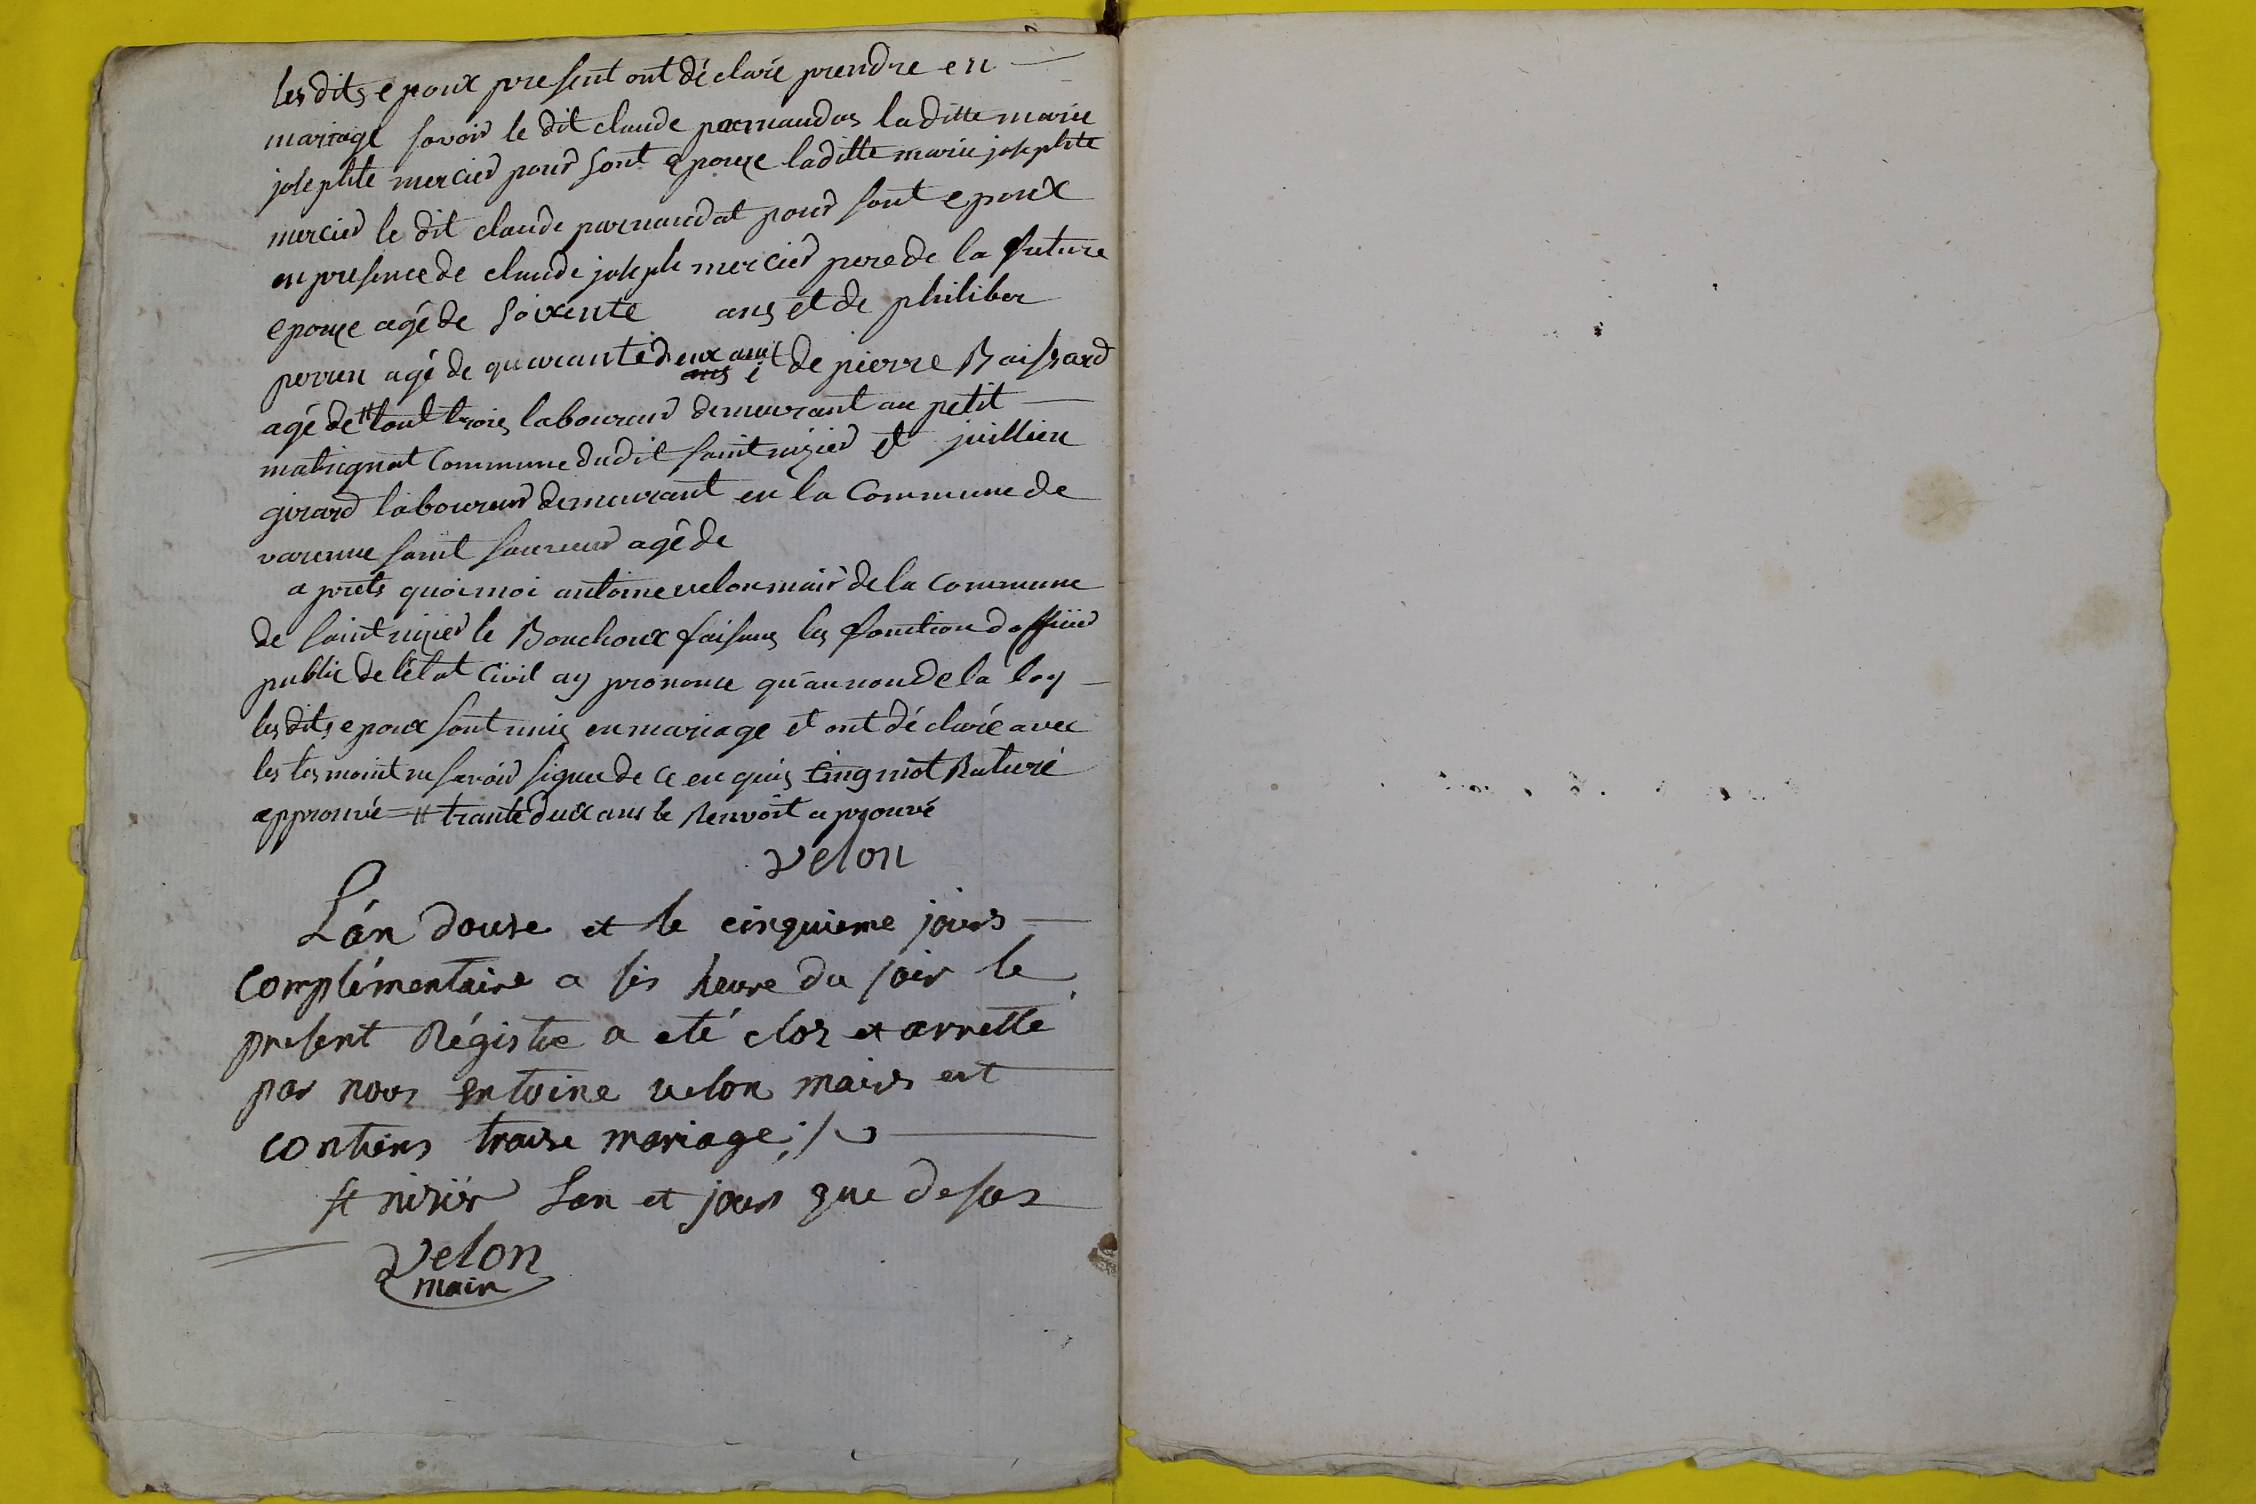 les dits epoux present ont déclaré prendre en
mariage savoir le dit claude parnaudas la ditte marie
josephte mercier pour sont epouxe laditte marie josephte
mercier le dit claude parnaudat pour sont epoux
en presence de claude joseph mercier pere de la future
epouxe agé de soixente ans et de philiber
perrin agé de quarante deux ans et de pierre Baissard
agé de # tout trois laboureur demeurant au petit
matignat Commune dudit saint nizier et juillien
girard laboureur demeurant en la Commune de
varenne saint sauveur agé de
a prets quoi moi antoine velon mair de la commune
de saint nizier le Bouchoux faisans les fonction dofficier
public de l'état Civil ay prononce qu'au nom de la loy
les dits epoux sont unis en mariage et ont déclaré avec
les tesmoint ne savoir signer de ce en quis cinq mot Raturé
approuvé # trante deux ans le Renvoit a prouvé
velon
L'an douse et le cinquieme jours
complémentaire a sis heure du soir le
present Régistre a eté clos et arretté
par nous entoine velon maire et
contiens traise mariage ;/
st nisiér Lan et jours que desus
velon
mair